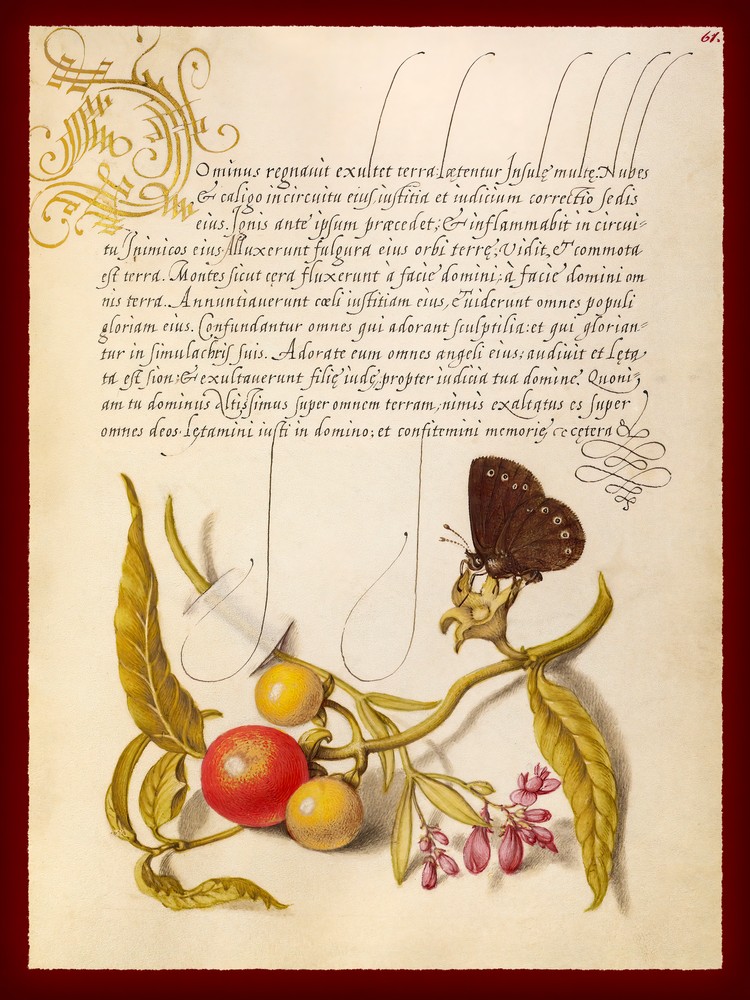 61.
Dominus regnauit exultet terra: lætentur Insulę multę. Nubes
& caligo in circuitu eius, iustitia et iudicium correctio sedis
eius. Ignis ante ipsum præcedet; & inflammabit in circui=
tu Inimicos eius. Alluxerunt fulgura eius orbi terrę, vidit, & commota
est terra. Montes sicut cęra fluxerunt à facie domini; à facie domini om
nis terra. Annuntiauerunt cœli iustitiam eius, & uiderunt omnes populi
gloriam eius. Confundantur omnes qui adorant sculptilia: et qui glorian=
tur in simulachris suis. Adorate eum omnes angeli eius: audiuit et lęta
ta est sion; & exultauerunt filię iudę, propter iudicia tua domine. Quoni,
am tu dominus Altissimus super omnem terram, nimis exaltatus es super
omnes deos. Lętamini iusti in domino; et confitemini memorię &c cętera &